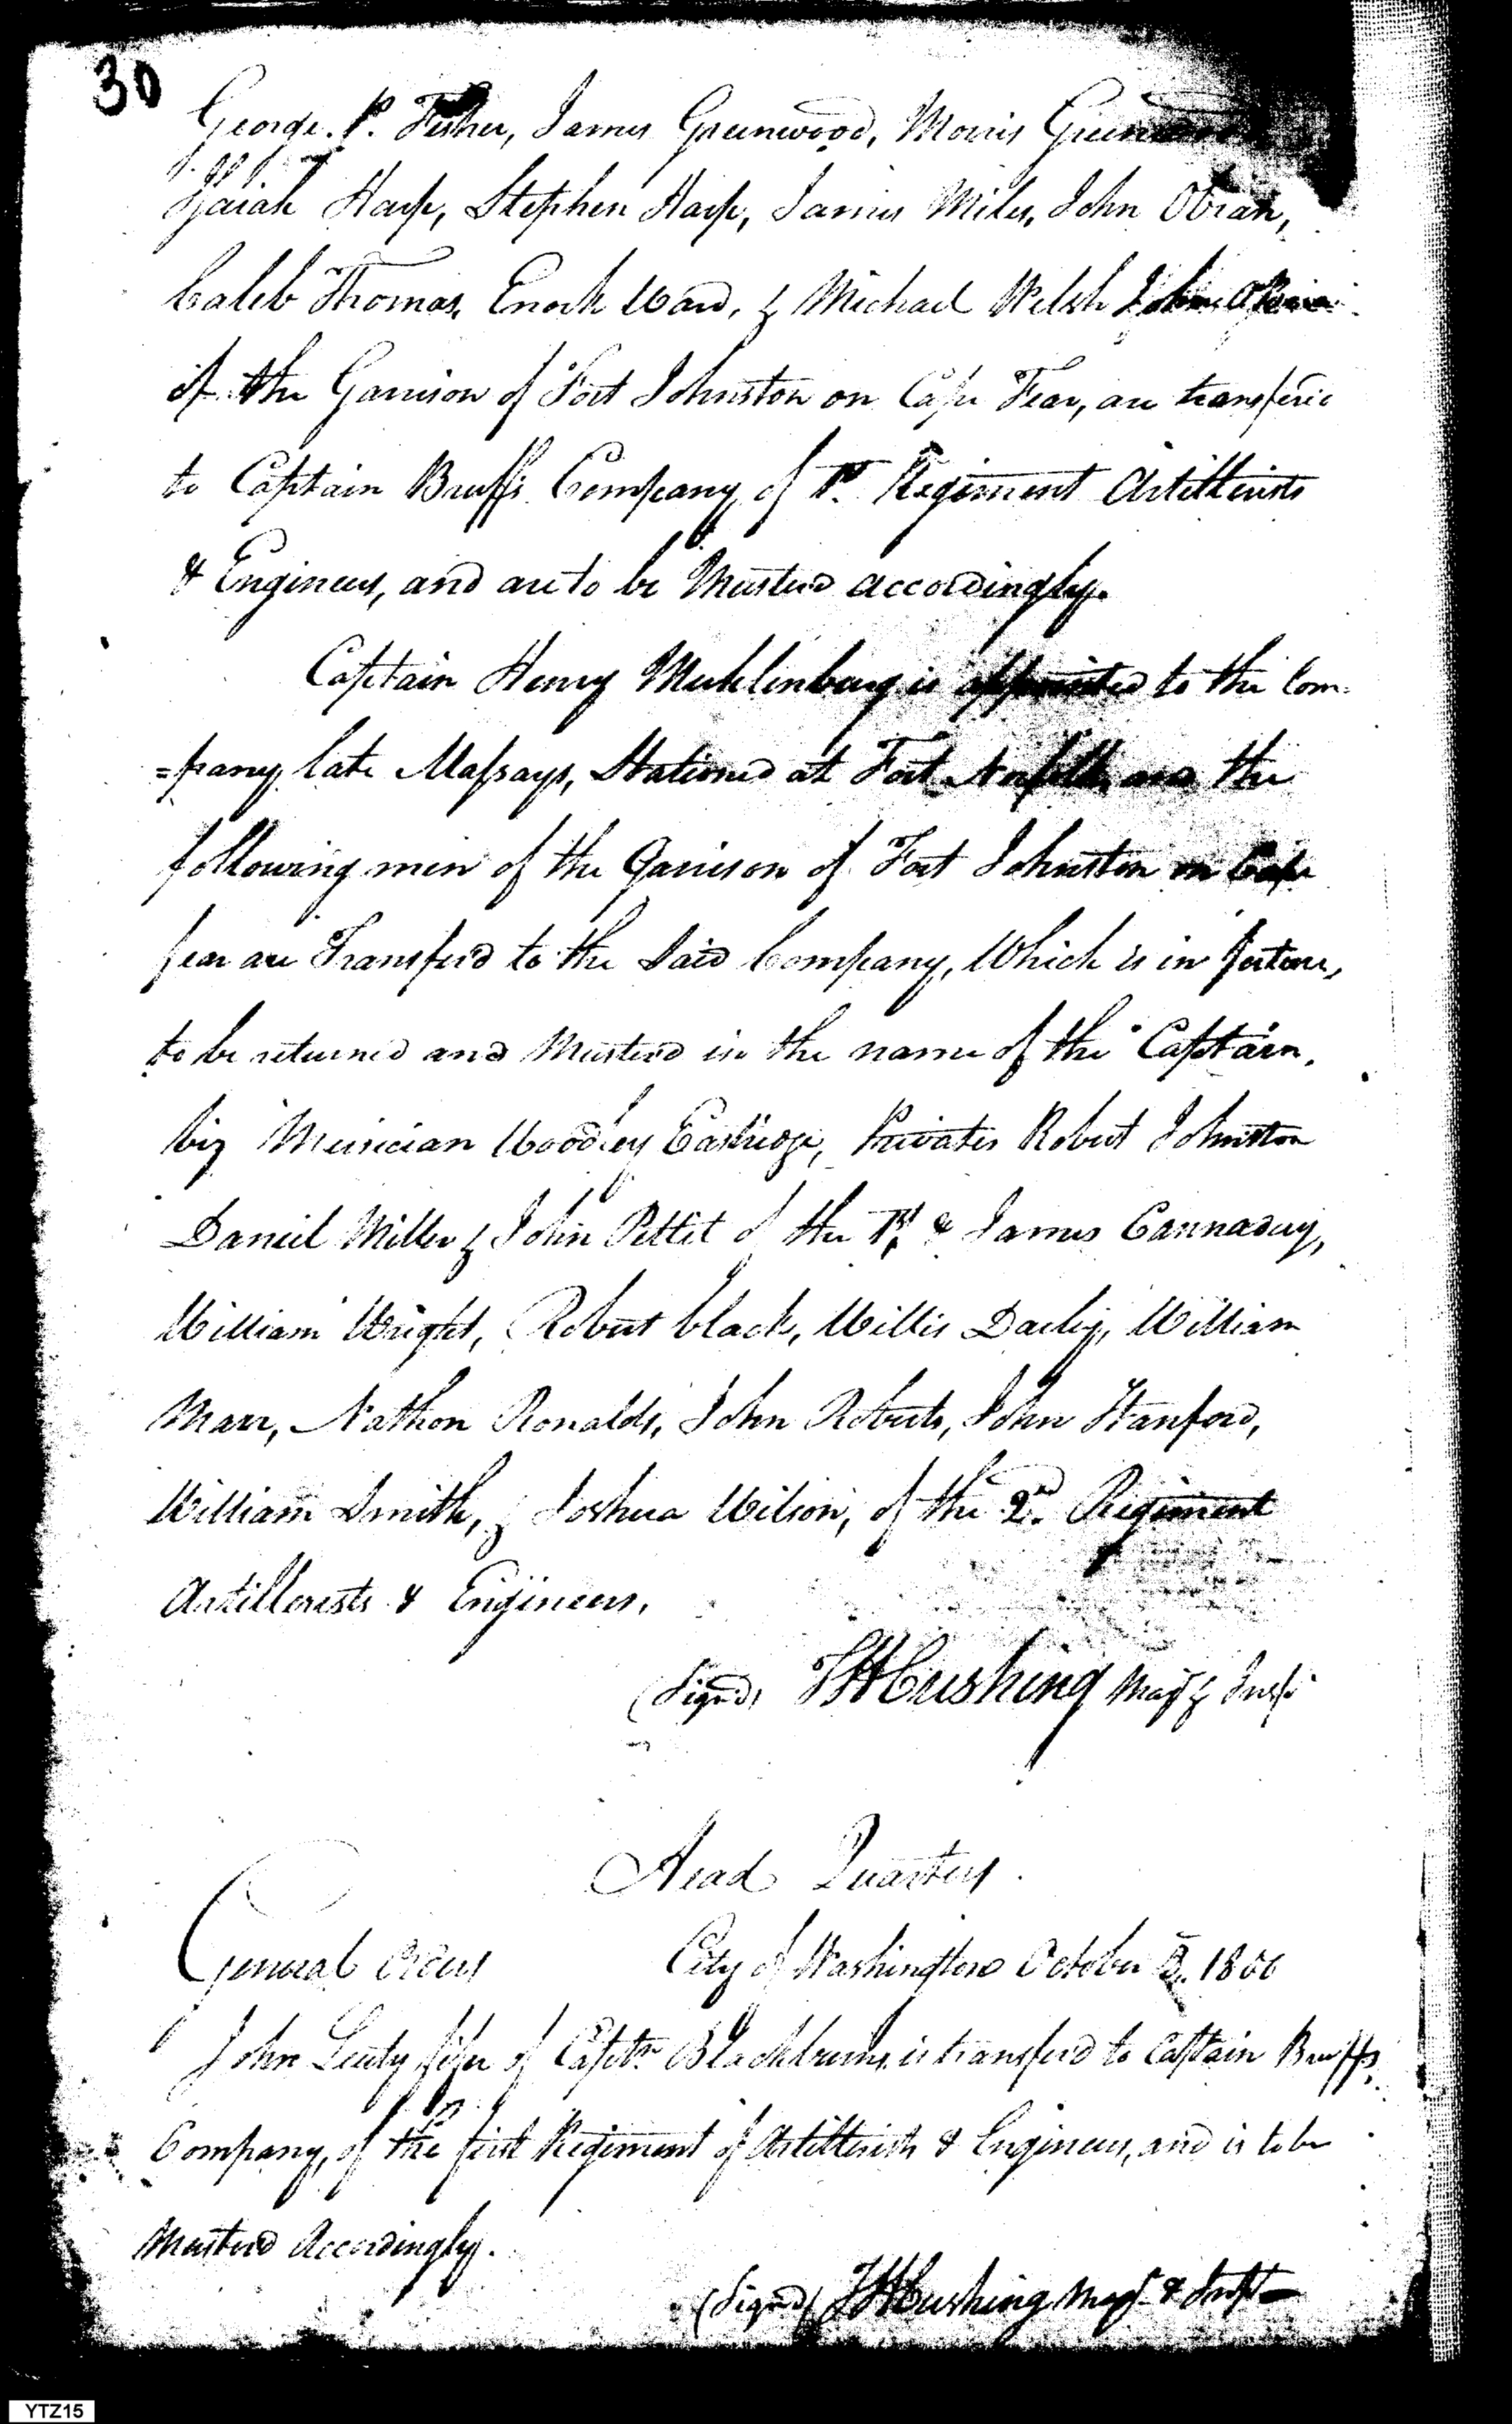 30
George. P. Fisher, James Greenwood, Morris
Isaiah Harp, Stephen Harp, James Miles, John Obran,
Caleb Thomas, Enoch Ward, & Michael Welsh
of the Garrison of Fort Johnston on Cape Fear, are transferd
to Captain Bruffs Company of 1st. Regiment Artillerists
& Engineers, and are to be Musterd accordingly.
Captain Henry Mucklenburg is appointed to the Com-
=pany late Massays, Stationed at Fort Norfolk, and the
following men of the Garrison of Fort Johnston on Cape
fear are Transferd to the Said Company, Which is in future,
to be returned and Musterd in the name of the Captain,
Viz Musician Woodley Eastridge, Privates Robert Johnston
Daniel Miller & John Pettit of the 1st. & James Cannaduy,
William Wright, Robert black, Willis Darby, William
Marr, Nathon Ronalds, John Roberts, John Stanford,
William Smith, & Joshua Wilson, of the 2nd. Regiment
Artillerists & Engineers,
(Signd) THCushing Majr & Inspr
Head Quarters.
General Orders City of Washington October 3. 1800
John fifer of Captn Blackburns is transferd to Captain Bruffs,
Company, of the first Regiment of Artillerists & Engineers, and is to be
Musterd Accordingly.
(Signed) THCushing Majr & Inspt
YTZ15